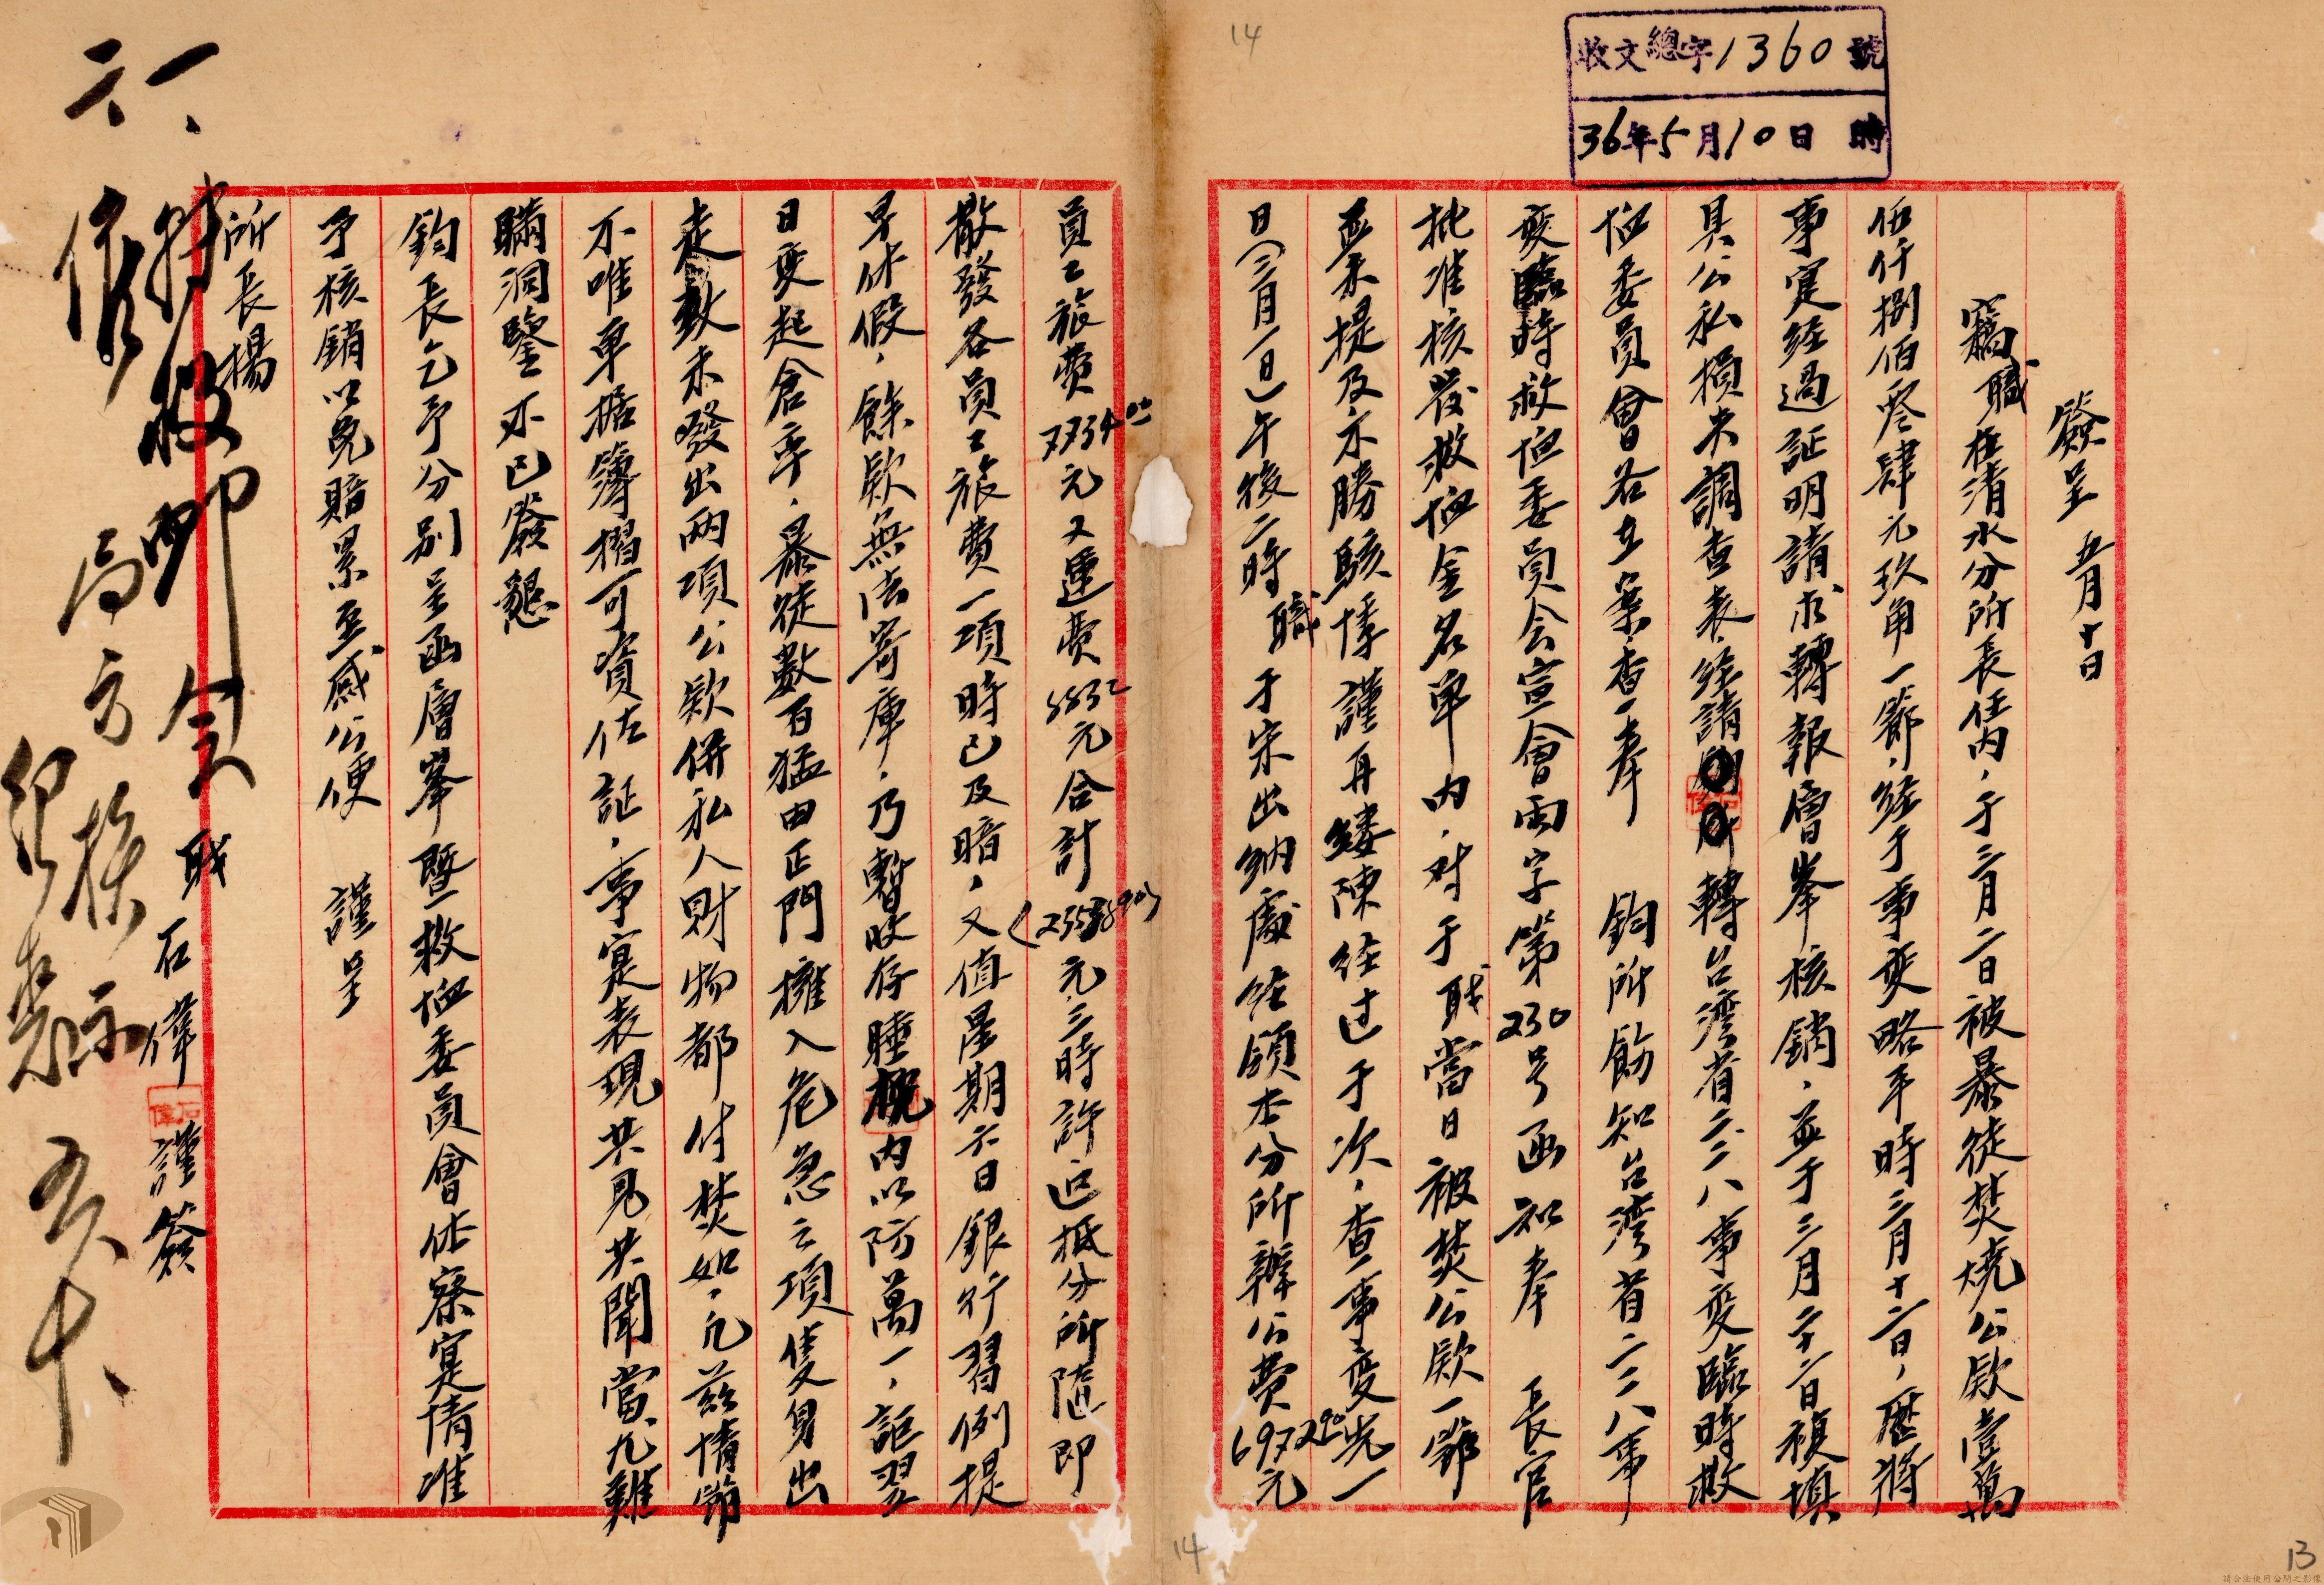 14
收文總字1360號
36年5月10日 時
簽呈 五月十日
竊職在清水分所長任內,于三月二日被暴徒焚燒公款壹萬
伍仟捌佰零肆元玖角一節,經于事變略平時三月十二日,歷將
事實經過証明請求轉報層峯核銷,並于三月二十二日複填
具公私損失調查表,經請 轉台灣省二二八事變臨時救
恤委員會各立案,查奉 鈞所飭知台灣省二二八事
變臨時救恤委員会宣會雨字第230号函知奉 長官
批准核發救恤金名单內,对于职當日被焚公款一節
並未提及,亦勝駭悸謹再縷陳经过于次,查事變先一
日(三月一日)午後二時職于宋出納處經領本分所辦公費6972.90元
員工旅费7734.00元又運费8832元合計(23538.90)元,三時許返抵分所隨即
撒發各員工旅費一項時已及暗,又值星期六日銀行習例提
早休假,餘款無法寄庫,乃暫收存睡櫈內以防萬一,詎翌
日变起倉卒,暴徒數百猛由正門擁入危急之項隻身出
走,致未發出兩項公款併私人財物都付焚如,凡茲情節
不唯单据簿摺可資佐証,事實表現共見共聞當尤難
瞞洞鑒亦已簽懇
鈞長乞予分别呈函層峯暨救恤委員會体察實情准
予核銷以免賠累至感公便 謹呈
所長楊
职 石偉 謹簽
六一、
五、十、
14
13
請合法使用公開之影像